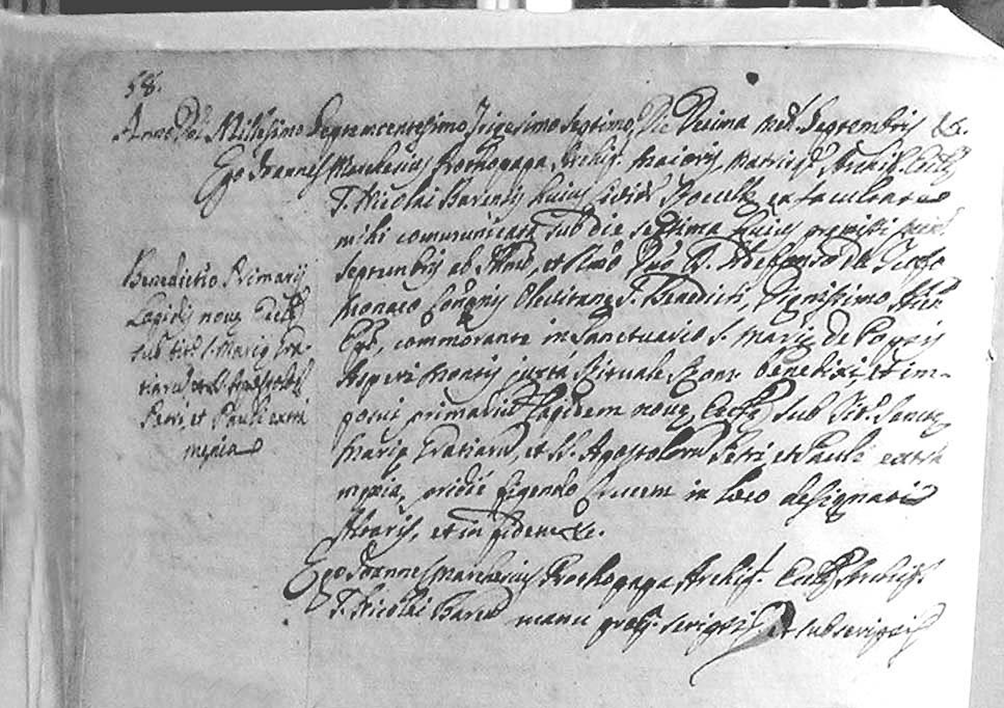 58.
Anno Dni Millesimo Septemcentesimo Trigesimo Septimo, Die Decima mens Septembris &c.
Ego Joannes Marchesius Prothopapa, Archip. maioris, matricis Archip. Eccle
S. Nicolai Barensis huius Civitis ex facultate
mihi comunicata sub die septima huius presentis mens
septembris ab Illmo, et Rmo Dno D. Ildefonso de
Monaco Congnis Olivitane S. Benedicti, Dignissimo Archi
Epo, commorante in Sanctuario S. Marie de
Asperi montis juxta Rituale Rom. benedixi, et im-
posui primariu Lapidem nove Eccle sub tit. Sancte
Marie Gratiaru, et SS. Apostoloru Petri et Pauli extra
menia, pridie figendo Crucem in loco designati
Altaris, et in fidem &c.
Ego Joannes Marchesius Prothopapa Archip. Eccle
S. Nicolai Baren manu propa scripsi, et subscripsi
Benedictio Primarij
Lapidis nove Eccle
sub tit. S. Marie Gra-
tiaru et SS. Apostolor
Petri, et Pauli extra
menia